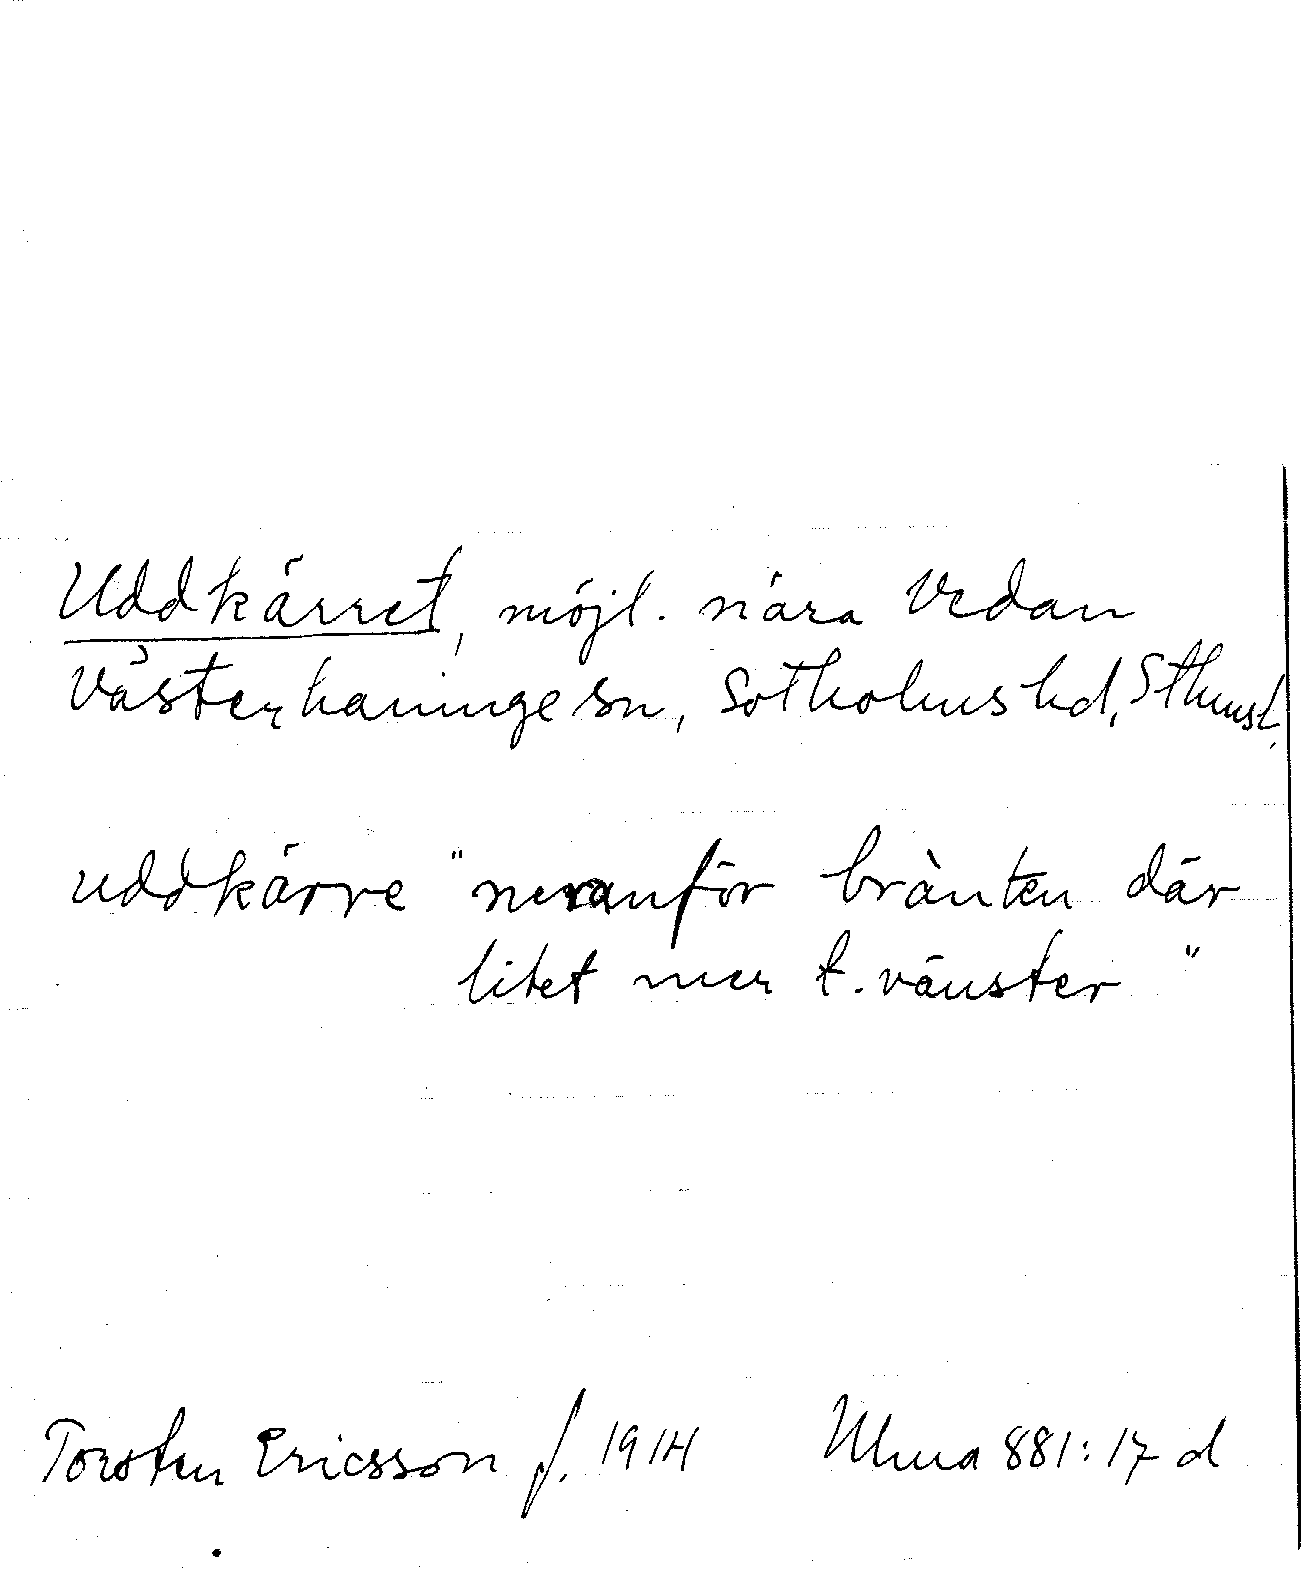 Uddkärret, möjl. nära Vedan
Västerhaninge sn, Sotholms hd, Sthmsl.
uddkärre "neranför brànten där
litet mer t. vänster"
Torsten Ericsson f. 1914 Ulma 881:17 d